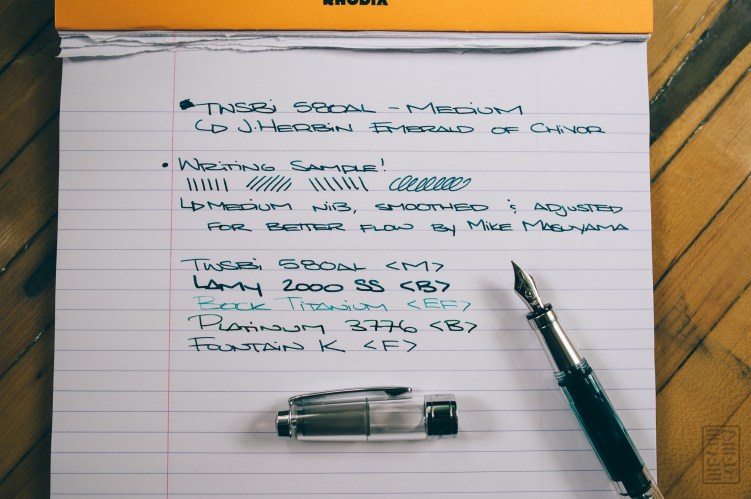 RHODIA
• TWSBi 580AL - MEDIUM
↳ J. HERBIN EMERALD OF CHIVOR
• WRITING SAMPLE!
↳ MEDIUM NIB, SMOOTHED & ADJUSTED
FOR BETTER FLOW BY MIKE MASUYAMA
TWSBi 580AL <M>
LAMY 2000 SS <B>
BOCK TITANIUM <EF>
PLATINUM 3776 <B>
FOUNTAIN K <F>